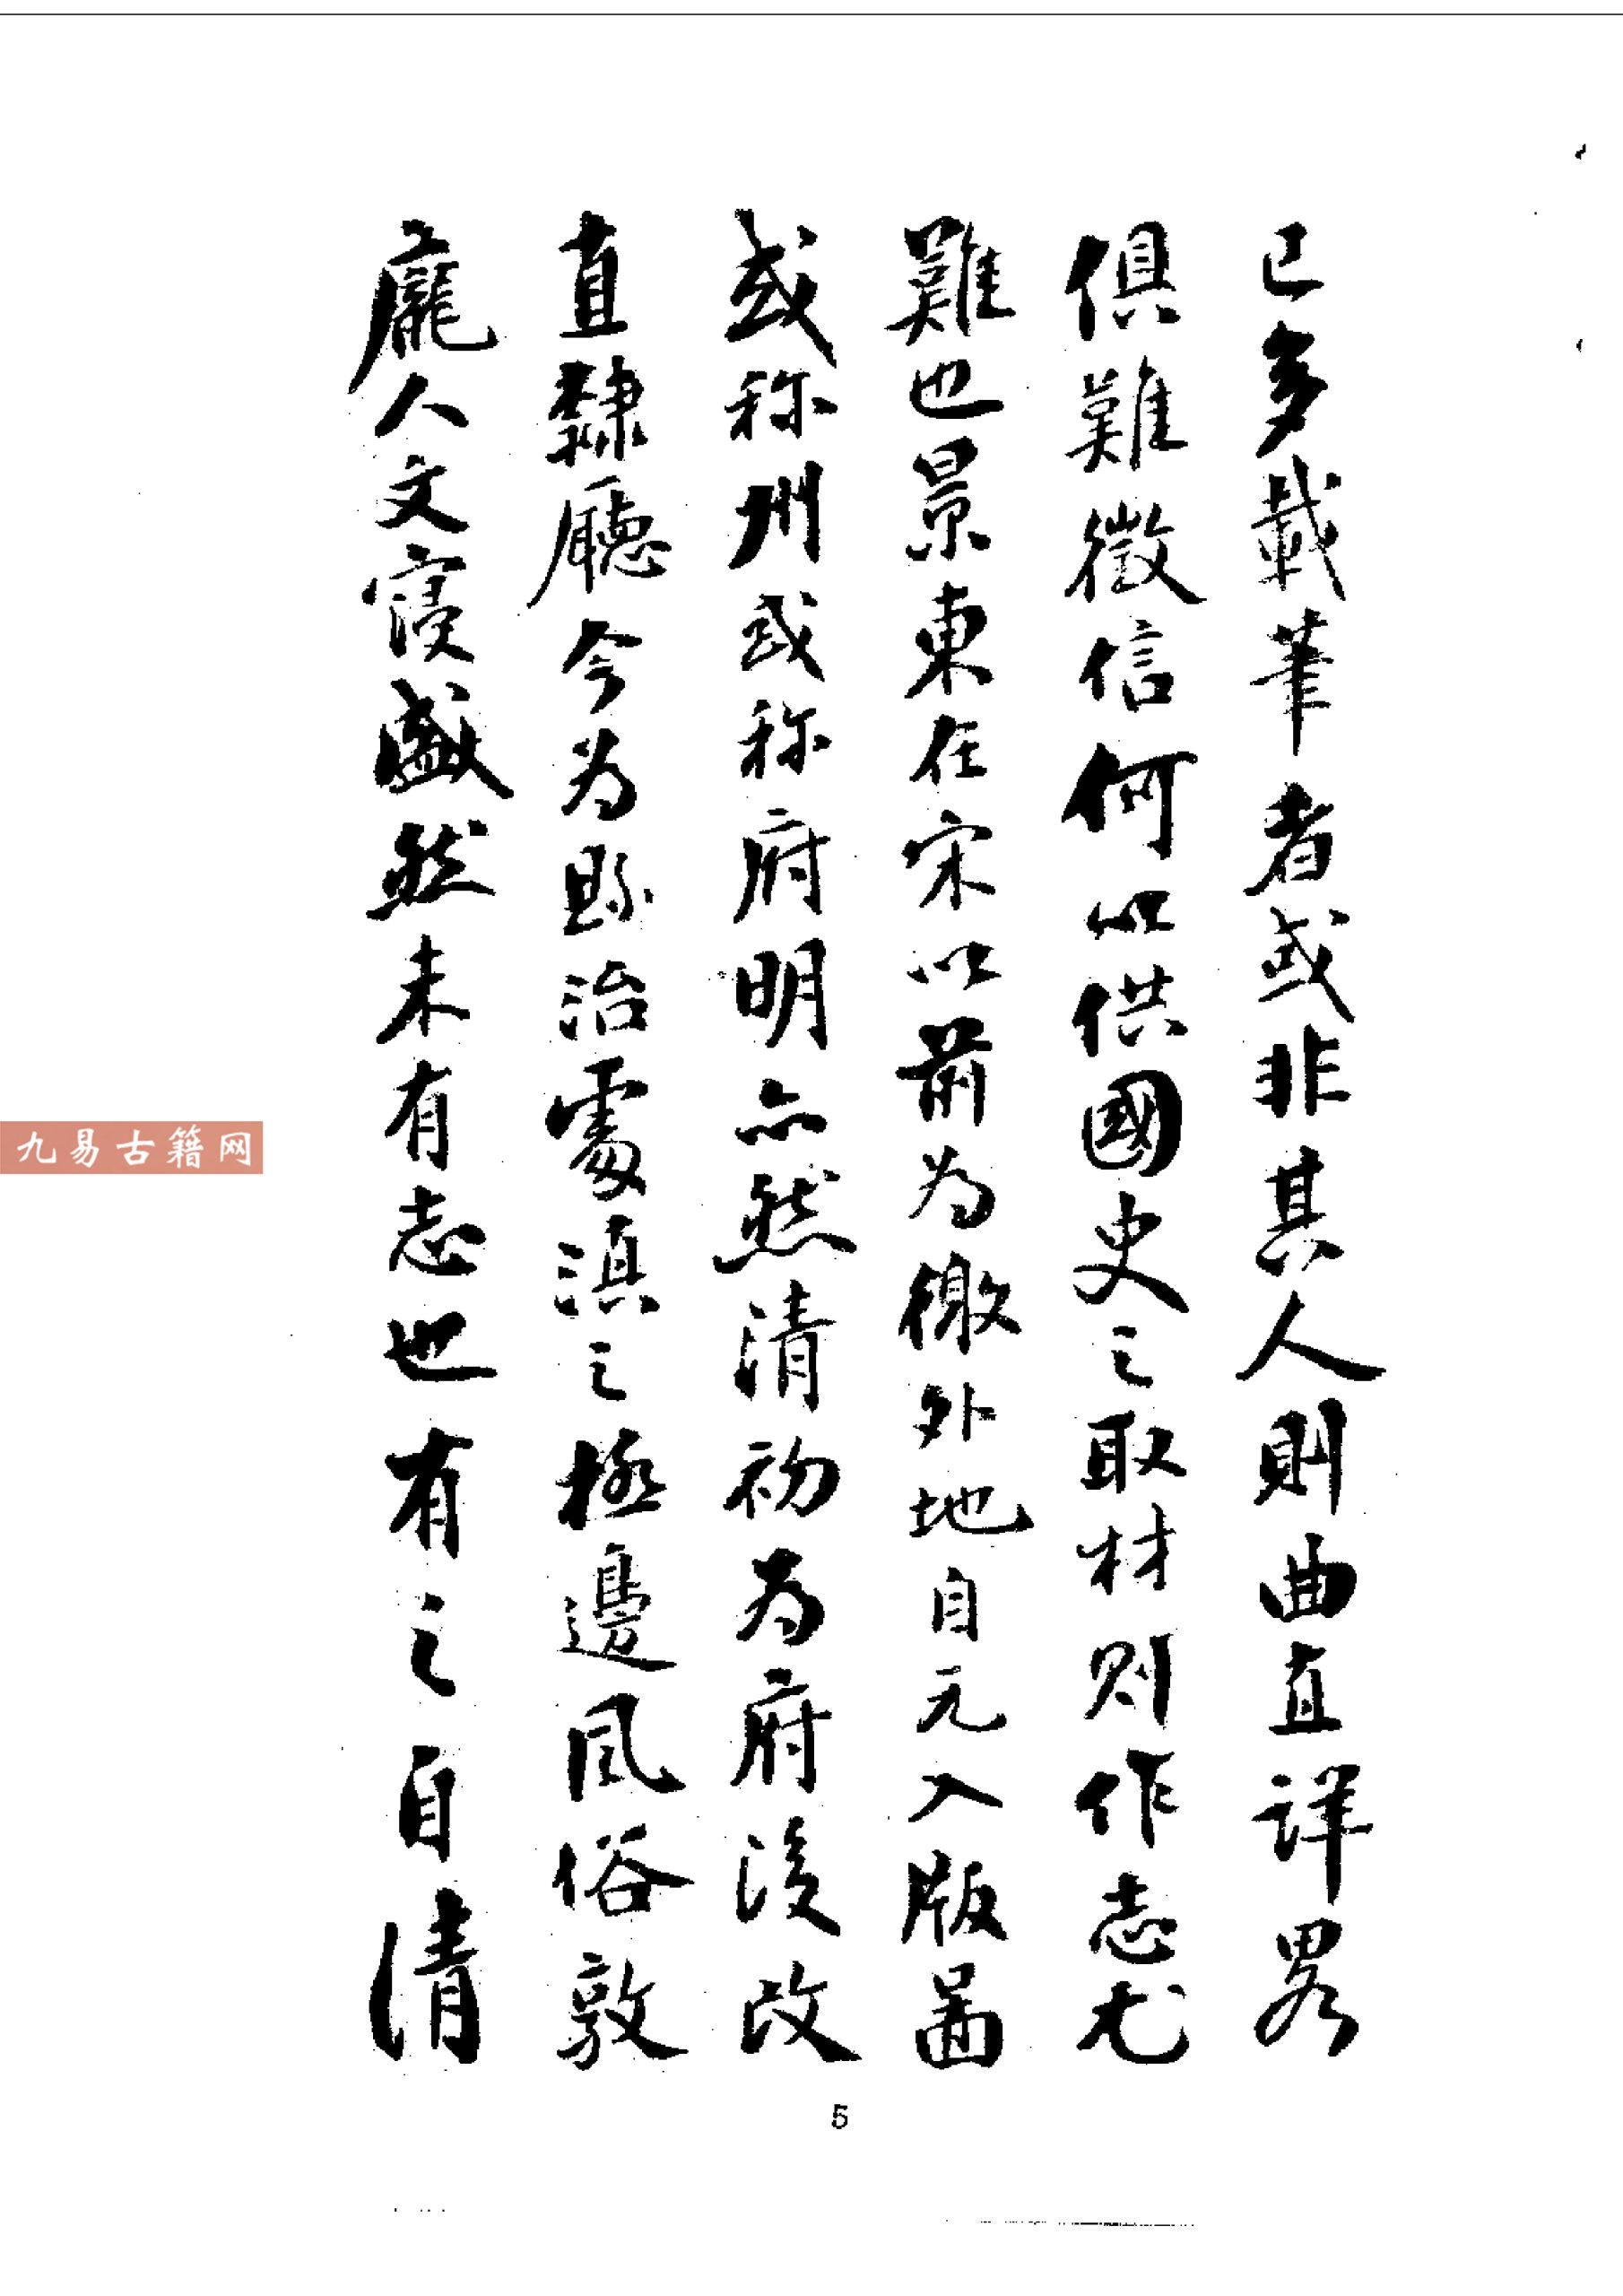 已多載筆者或非其人則曲直詳畧
俱難徵信何以供國史之取材則作志尤
難也景東在宋以前为徼外地自元入版啚
或称州或称府明亦然清初为府後改
直隸廳今为縣治處滇之極邊風俗敦
龐人文寖盛然未有志也有之自清
5
九易古籍网